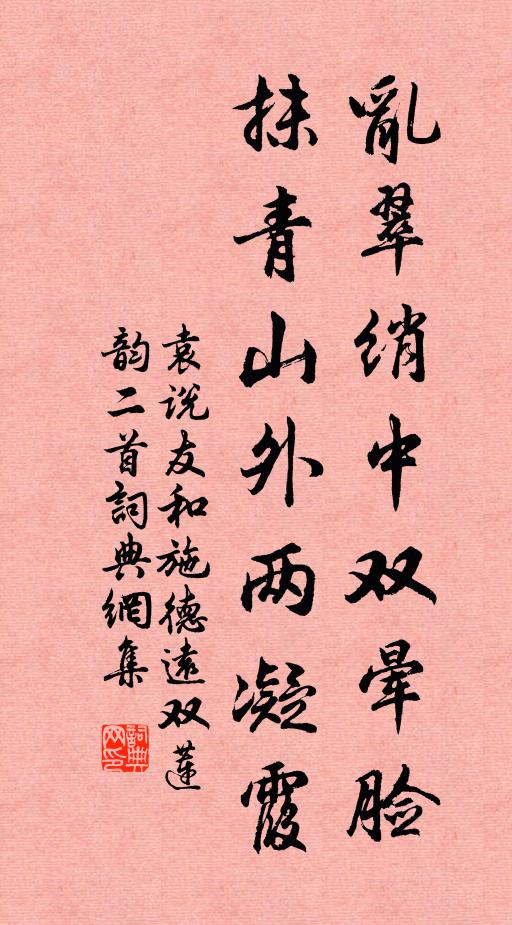 亂翠绡中双晕脸
抹青山外两凝霞
袁说友和施德遠双蓮
韵二首詞典網集
詞典網印